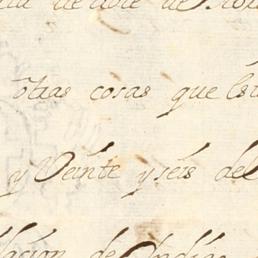 de
otras cosas que
y Veinte y seis del
lacion de Indias